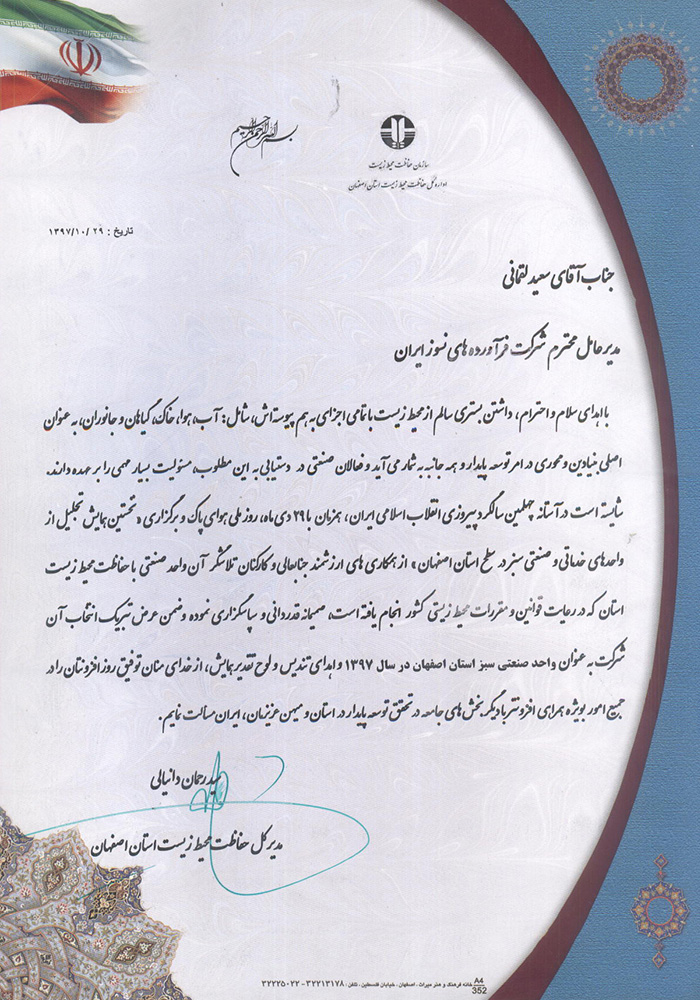 بسم الله الرحمن الرحیم
سازمان حفاظت محیط زیست
اداره کل حفاظت محیط زیست استان اصفهان
تاریخ : ۱۳۹۷/۱۰/۲۹
جناب آقای سعید لقمانی
مدیرعامل محترم شرکت فرآورده های نسوز ایران
با اهدای سلام و احترام، داشتن بستری سالم از محیط زیست با تمامی اجزای به هم پیوسته اش، شامل: آب، هوا، خاک، گیاهان و جانوران، به عنوان
اصلی بنیادین و محوری در امر توسعه پایدار و همه جانبه به شمار می آید و فعالان صنعتی در دستیابی به این مطلوب، مسئولیت بسیار مهمی را بر عهده دارند.
شایسته است در آستانه چهلمین سالگرد پیروزی انقلاب اسلامی ایران، همزمان با ۲۹ دی ماه، روز ملی هوای پاک و برگزاری « نخستین همایش تجلیل از
واحدهای خدماتی و صنعتی سبز در سطح استان اصفهان » از همکاری های ارزشمند جنابعالی و کارکنان تلاشگر آن واحد صنعتی با حفاظت محیط زیست
استان که در رعایت قوانین و مقررات محیط زیستی کشور انجام یافته است، صمیمانه قدردانی و سپاسگزاری نموده و ضمن عرض تبریک انتخاب آن
شرکت به عنوان واحد صنعتی سبز استان اصفهان در سال ۱۳۹۷ و اهدای تندیس و لوح تقدیر همایش، از خدای منان توفیق روز افزونتان را در
جمیع امور بویژه همراهی افزونتر با دیگر بخش های جامعه در تحقق توسعه پایدار در استان و میهن عزیزمان، ایران مسالت نمایم.
سید رحمان دانیالی
مدیر کل حفاظت محیط زیست استان اصفهان
خانه فرهنگ و هنر میراث - اصفهان - خیابان فلسطین - تلفن : ۳۲۲۱۳۱۷۸ - ۳۲۲۲۵۰۲۲
A4
352